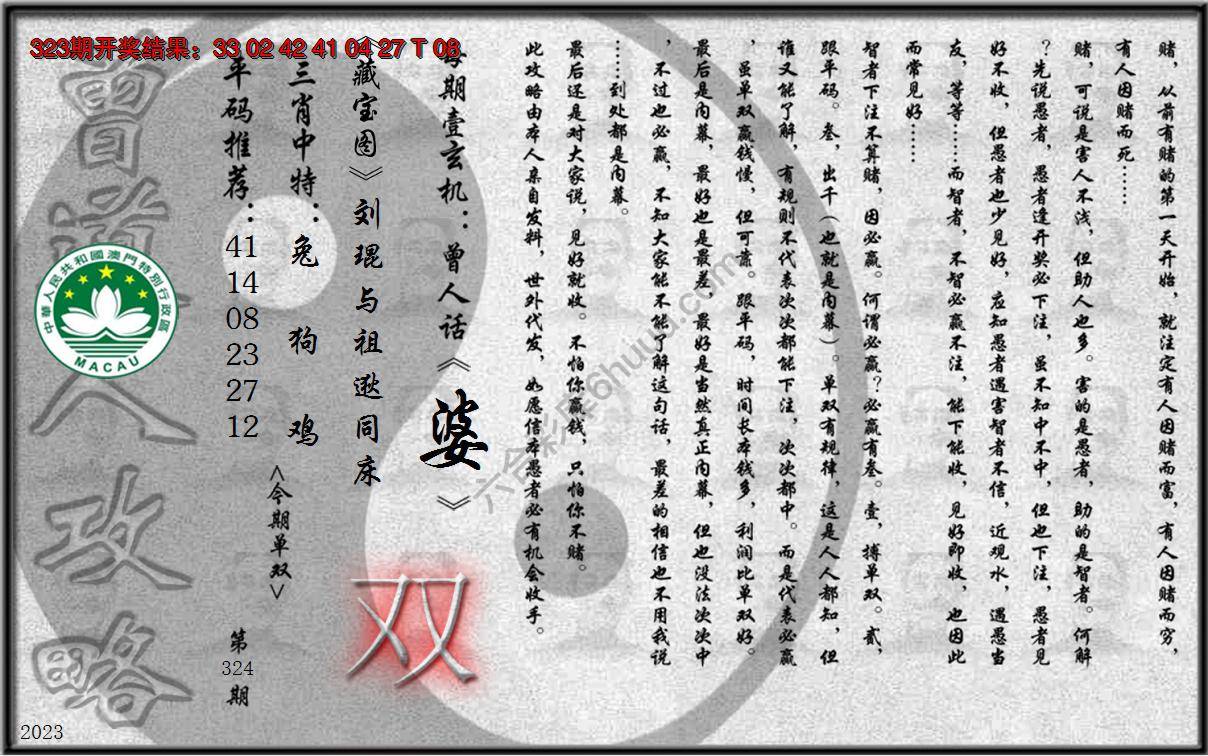 323期开奖结果：33 02 42 41 04 27 T 08
赌，从前有赌的第一天开始，就注定有人因赌而富，有人因赌而穷，
有人因赌而死……
赌，可说是害人不浅，但助人也多。害的是愚者，助的是智者。何解
？先说愚者，愚者逢开奖必下注，虽不知中不中，但也下注，愚者见
好不收，但愚者也少见好，应知愚者遇害智者不信，近观水，遇愚当
友，等等……而智者，不智必赢不注，能下能收，见好即收，也因此
而常见好……
智者下注不算赌，因必赢。何谓必赢？必赢有叁。壹，搏单双。贰，
跟平码。叁，出千（也就是内幕）。单双有规律，这是人人都知，但
谁又能了解，有规则不代表次次都能下注，次次都中。而是代表必赢
，虽单双赢钱慢，但可靠。跟平码，时间长本钱多，利润比单双好。
最后是内幕，最好也是最差，最好是当然真正内幕，但也没法次次中
，不过也必赢，不知大家能不能了解这句话，最差的相信也不用我说
……到处都是内幕。
最后还是对大家说，见好就收。不怕你赢钱，只怕你不赌。
此攻略由本人亲自发料，世外代发，如愿信本愚者必有机会收手。
每期壹玄机：曾人话《婆》
《藏宝图》刘琨与祖逖同床
三肖中特：兔 狗 鸡
平码推荐：41 14 08 23 27 12
<今期单双>
双
第324期
曾道人攻略
中華人民共和國澳門特別行政區
MACAU
六合彩库6huuu.com
2023